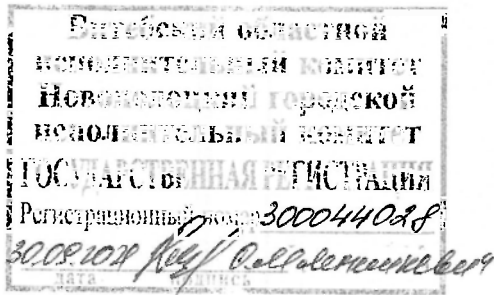 Витебский областной
исполнительный комитет
Новополоцкий городской
исполнительный комитет
ГОСУДАРСТВЕННАЯ РЕГИСТРАЦИЯ
Регистрационный номер 300044028
дата подпись